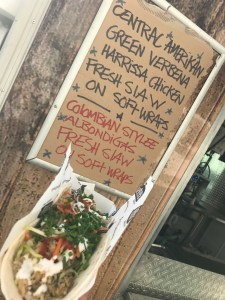 CENTRAL AMERIKAN
GREEN VERBENA
HARRISSA CHICKEN
FRESH SLAW
ON SOFT WRAPS
COLOMBIAN STYLEE
ALBONDIGAS
FRESH SLAW
ON SOFT WRAPS